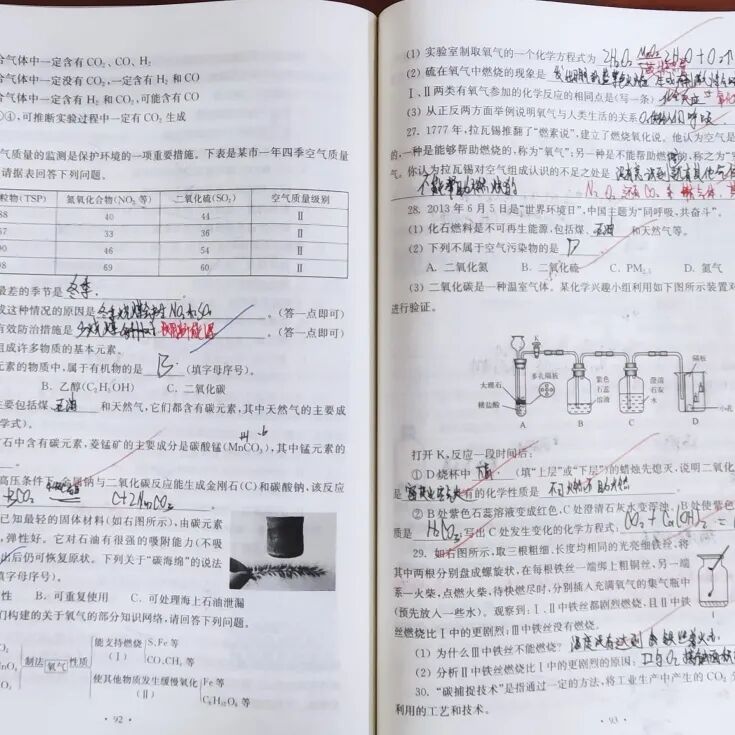 合气体中一定含有CO₂、CO、H₂
合气体中一定没有CO₂,一定含有H₂和CO
合气体中一定含有H₂和CO₂,可能含有CO
④,可推断实验过程中一定有CO₂生成
气质量的监测是保护环境的一项重要措施。下表是某市一年四季空气质量
请据表回答下列问题。
粒物(TSP) 氮氧化合物(NO₂等) 二氧化硫(SO₂) 空气质量级别
40 44 Ⅱ
33 36 Ⅱ
46 54 Ⅱ
69 60 Ⅱ
最差的季节是 冬季.
成这种情况的原因是 。(答一点即可)
有效防治措施是 。(答一点即可)
组成许多物质的基本元素。
元素的物质中,属于有机物的是 B (填字母序号)。
B. 乙醇(C₂H₅OH) C. 二氧化碳
主要包括煤、石油 和天然气,它们都含有碳元素,其中天然气的主要成
学式)。
石中含有碳元素,菱锰矿的主要成分是碳酸锰(MnCO₃),其中锰元素的
高压条件下,金属钠与二氧化碳反应能生成金刚石(C)和碳酸钠,该反应
3CO₂ C+2Na₂CO₃
已知最轻的固体材料(如右图所示),由碳元素
,弹性好。它对石油有很强的吸附能力(不吸
出后仍可恢复原状。下列关于“碳海绵”的说法
填字母序号)。
性 B. 可重复使用 C. 可处理海上石油泄漏
们构建的关于氧气的部分知识网络,请回答下列问题。
制法 氧气 性质
能支持燃烧(Ⅰ) S、Fe等 CO、CH₄等
使其他物质发生缓慢氧化(Ⅱ) Fe等 C₆H₁₂O₆等
· 92 ·
(1) 实验室制取氧气的一个化学方程式为 2H₂O₂ MnO₂ 2H₂O+O₂↑
(2) 硫在氧气中燃烧的现象是
Ⅰ、Ⅱ两类有氧气参加的化学反应的相同点是(写一条)
(3) 从正反两方面举例说明氧气与人类生活的关系
27. 1777年,拉瓦锡推翻了“燃素说”,建立了燃烧氧化说。他认为空气是
的,一种是能够帮助燃烧的,称为“氧气”;另一种是不能帮助燃烧的,称之为“
气。你认为拉瓦锡对空气组成认识的不足之处是
28. 2013年6月5日是“世界环境日”,中国主题为“同呼吸,共奋斗”。
(1) 化石燃料是不可再生能源,包括煤、石油 和天然气等。
(2) 下列不属于空气污染物的是 D
A. 二氧化氮 B. 二氧化硫 C. PM₂.₅ D. 氮气
(3) 二氧化碳是一种温室气体。某化学兴趣小组利用如下图所示装置对
进行验证。
K
大理石
稀盐酸
多孔隔板
紫色石蕊溶液
澄清石灰水
隔板
小孔
A B C D
打开K,反应一段时间后:
① D烧杯中 下层 (填“上层”或“下层”)的蜡烛先熄灭,说明二氧化
是 有的化学性质是
② B处紫色石蕊溶液变成红色,C处澄清石灰水变浑浊,B处使紫色
质是 H₂CO₃,写出C处发生变化的化学方程式: CO₂+Ca(OH)₂=
29. 如右图所示,取三根粗细、长度均相同的光亮细铁丝,将
其中两根分别盘成螺旋状,在每根铁丝一端绑上粗铜丝,另一端
系一火柴,点燃火柴,待快燃尽时,分别插入充满氧气的集气瓶中
(预先放入一些水)。观察到:Ⅰ、Ⅱ中铁丝都剧烈燃烧,且Ⅱ中铁
丝燃烧比Ⅰ中的更剧烈;Ⅲ中铁丝没有燃烧。
Ⅰ
(1) 为什么Ⅲ中铁丝不能燃烧?
(2) 分析Ⅱ中铁丝燃烧比Ⅰ中的更剧烈的原因:
30. “碳捕捉技术”是指通过一定的方法,将工业生产中产生的CO₂
利用的工艺和技术。
· 93 ·